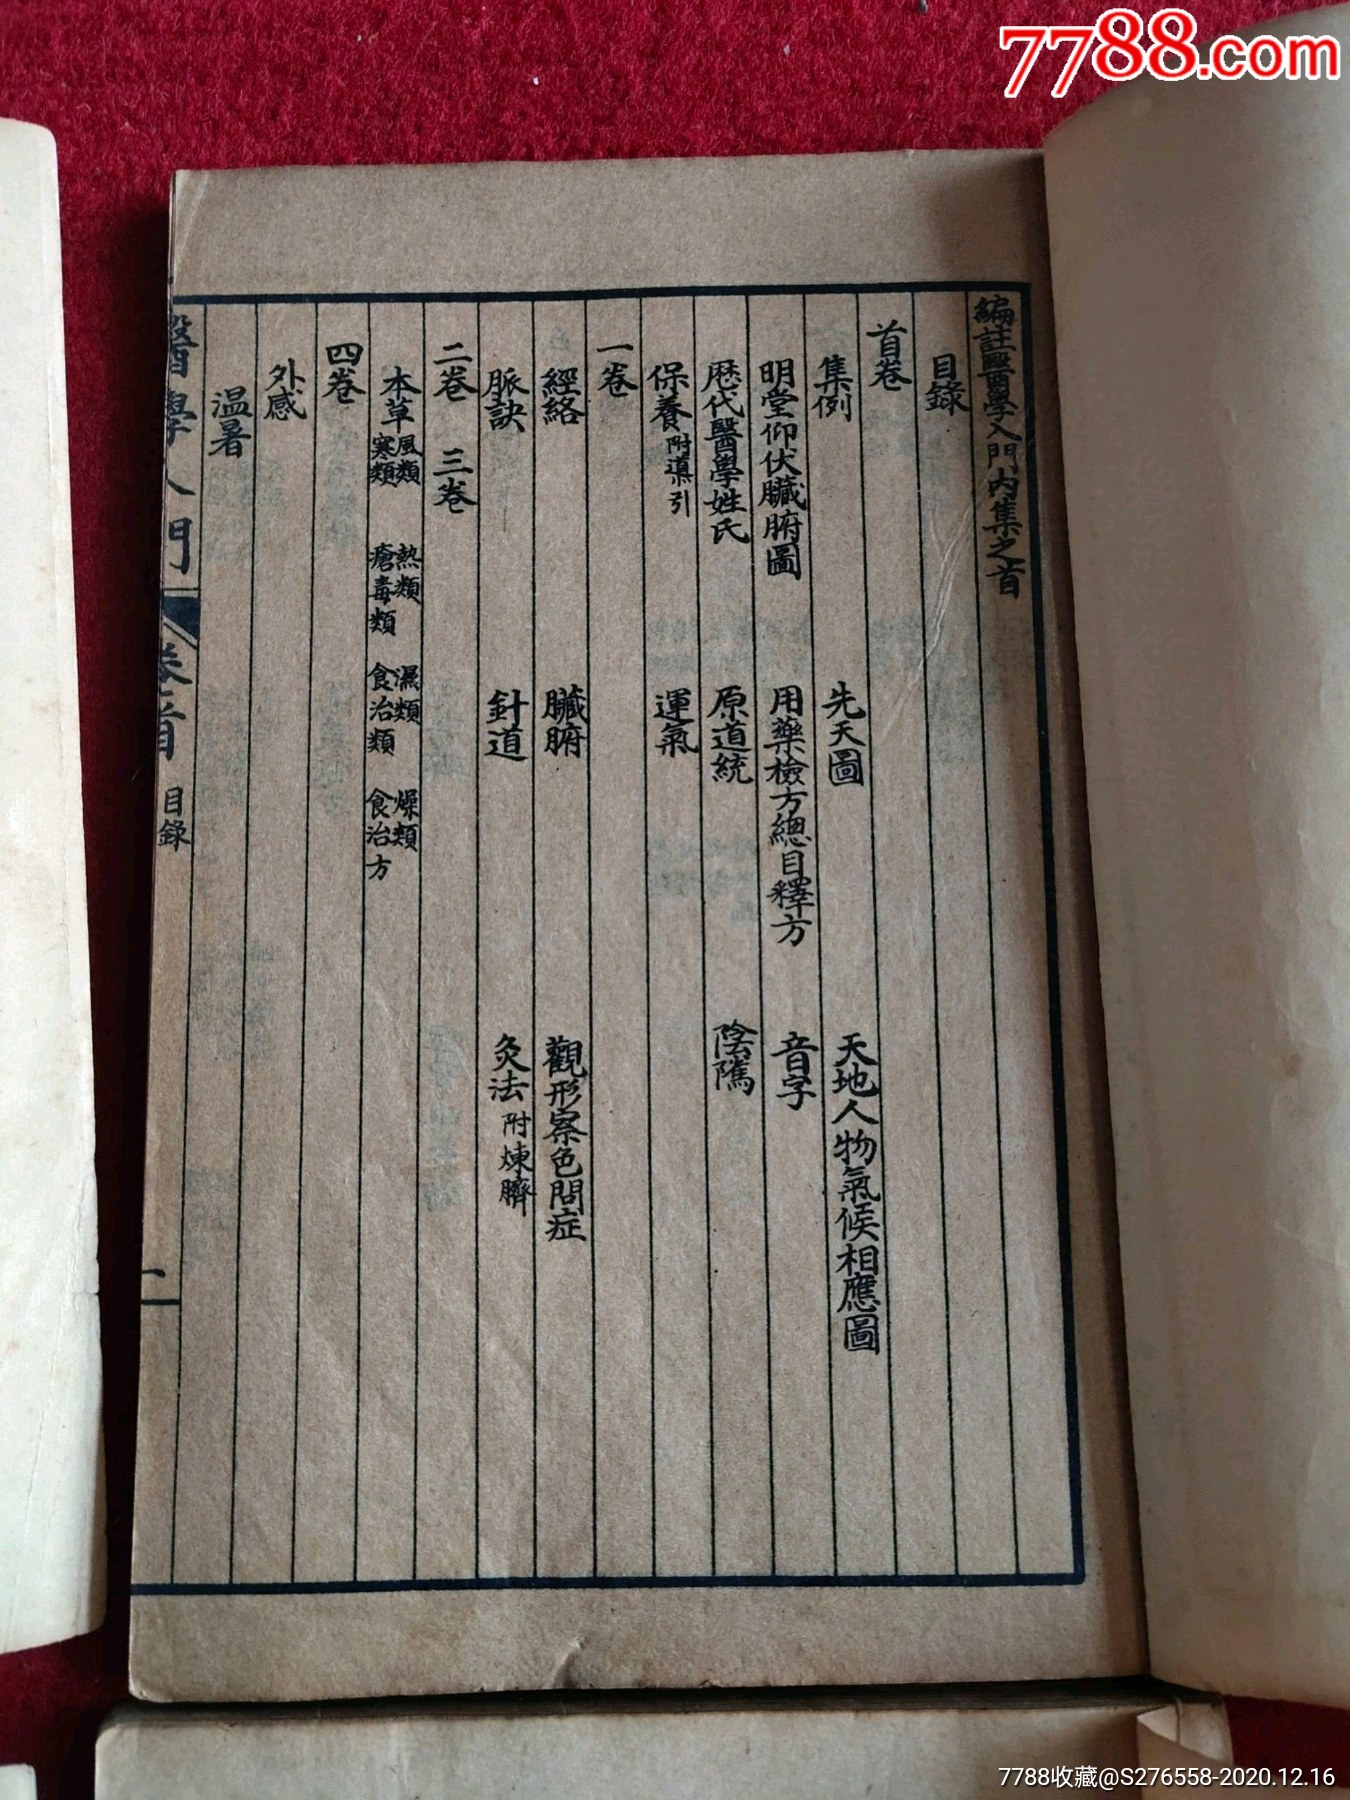 7788.com
編註醫學入門內集之首
目錄
首卷
集例 先天圖 天地人物氣候相應圖
明堂仰伏臟腑圖 用藥檢方總目釋方 音字
歷代醫學姓氏 原道統 陰隲
保養附導引 運氣
一卷
經絡 臟腑 觀形察色問症
脈訣 針道 灸法附煉臍
二卷 三卷
本草風類 熱類 濕類 燥類
寒類 瘡毒類 食治類 食治方
四卷
外感
溫暑
醫學入門 卷首 目錄 一
7788收藏@S276558-2020.12.16